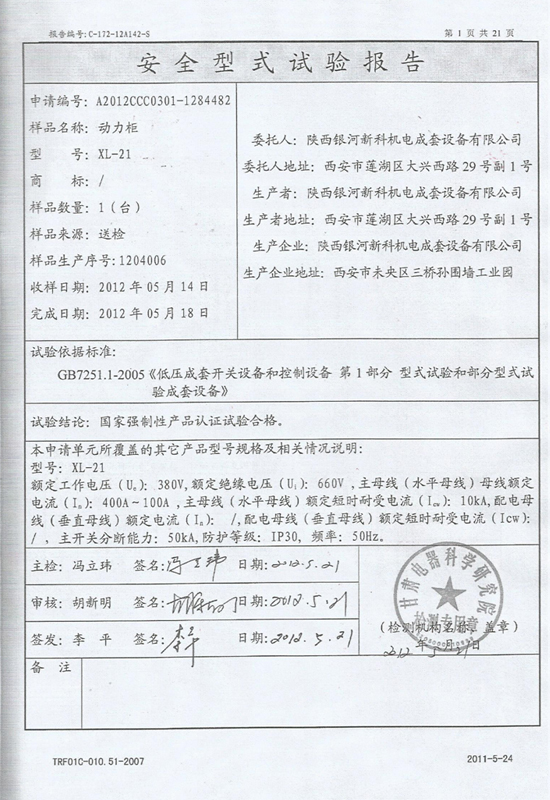 报告编号:C-172-12A142-S 第 1 页 共 21 页
安全型式试验报告
申请编号：A2012CCC0301-1284482
样品名称：动力柜
型 号：XL-21
商 标：/
样品数量：1（台）
样品来源：送检
样品生产序号：1204006
收样日期：2012 年 05 月 14 日
完成日期：2012 年 05 月 18 日
委托人：陕西银河新科机电成套设备有限公司
委托人地址：西安市莲湖区大兴西路 29 号副 1 号
生产者：陕西银河新科机电成套设备有限公司
生产者地址：西安市莲湖区大兴西路 29 号副 1 号
生产企业：陕西银河新科机电成套设备有限公司
生产企业地址：西安市未央区三桥孙围墙工业园
试验依据标准：
GB7251.1-2005《低压成套开关设备和控制设备 第 1 部分 型式试验和部分型式试
验成套设备》
试验结论：国家强制性产品认证试验合格。
本申请单元所覆盖的其它产品型号规格及相关情况说明：
型号：XL-21
额定工作电压（Ue）：380V,额定绝缘电压（Ui）：660V ,主母线（水平母线）母线额定
电流（In）：400A～100A ,主母线（水平母线）额定短时耐受电流（Icw）：10kA,配电母
线（垂直母线）额定电流（In）： /,配电母线（垂直母线）额定短时耐受电流（Icw）：
/ ，主开关分断能力：50kA,防护等级：IP30, 频率：50Hz。
主检：冯立玮 签名：冯立玮 日期：2012.5.21
审核：胡新明 签名：胡新明 日期：2012.5.21
签发：李 平 签名：李平 日期：2012.5.21
甘肃电器科学研究院
检测专用章
（检测机构名称、盖章）
2012 年 5 月 21 日
备 注
TRF01C-010.51-2007 2011-5-24